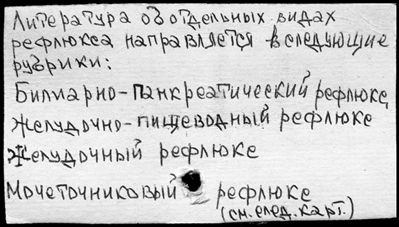 Литература об отдельных видах
рефлюкса направляется в следующие
рубрики:
Билиарно-панкреатический рефлюкс
Желудочно-пищеводный рефлюкс
Желудочный рефлюкс
Мочеточниковый рефлюкс
(см. след. карт.)